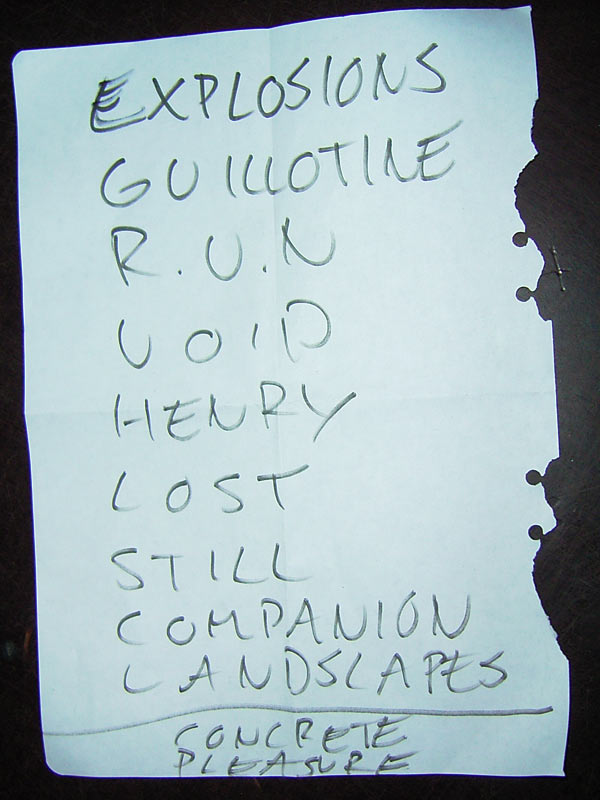 EXPLOSIONS
GUILLOTINE
R.U.N
VOID
HENRY
LOST
STILL
COMPANION
LANDSCAPES
CONCRETE
PLEASURE